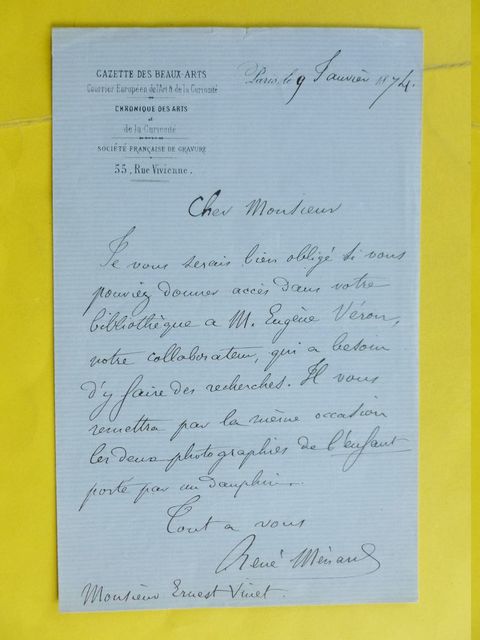 GAZETTE DES BEAUX-ARTS
Courrier Européen de l'Art & de la Curiosité
CHRONIQUE DES ARTS
et
de la Curiosité
SOCIÉTÉ FRANÇAISE DE GRAVURE
55, Rue Vivienne.
Paris, le 9 Janvier 1874.
Cher Monsieur
Je vous serais bien obligé si vous
pouviez donner accès dans votre
bibliothèque a M. Eugène Véron,
notre collaborateur, qui a besoin
d'y faire des recherches. Il vous
remettra par la même occasion
les deux photographies de l'enfant
porté par un dauphin.
Tout a vous
René Ménard
Monsieur Ernest Vinet.